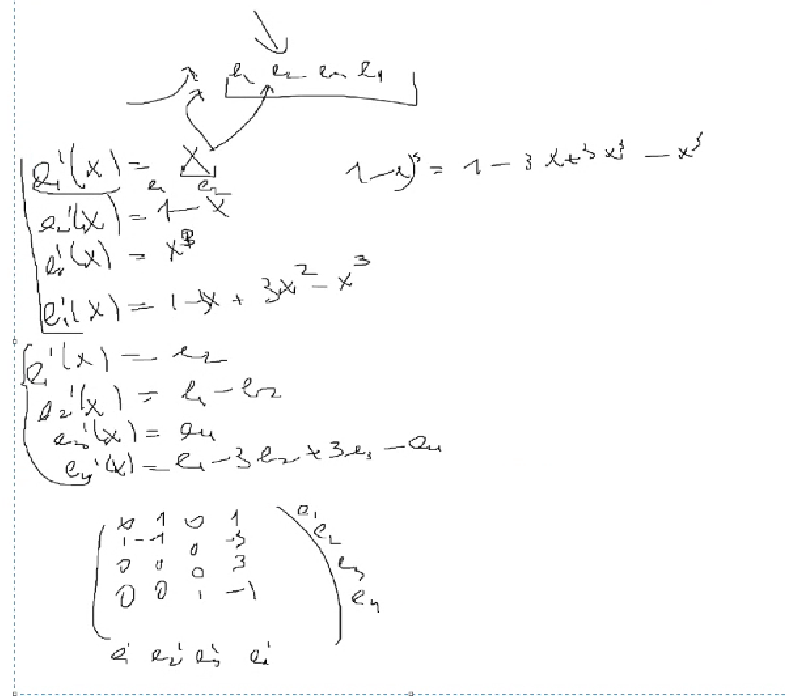 e₁ e₂ e₃ e₄
e₁'(x) = x
e₁ e₂
1-x)³ = 1 - 3x+3x² - x³
e₂'(x) = 1-x
e₃'(x) = x³
e₄'(x) = 1-3x + 3x² - x³
e₁'(x) = e₂
e₂'(x) = e₁ - e₂
e₃'(x) = e₄
e₄'(x) = e₁ - 3e₂ + 3e₃ - e₄
0 1 0 1 e₁
1 -1 0 -3 e₂
0 0 0 3 e₃
0 0 1 -1 e₄
e₁' e₂' e₃' e₄'